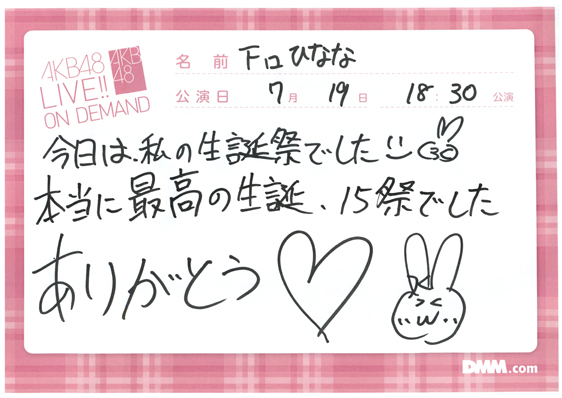 AKB48
LIVE!!
ON DEMAND
AKB
48
名前 下口ひなな
公演日 7月 19日 18:30 公演
今日は、私の生誕祭でした
本当に最高の生誕、15祭でした
ありがとう
DMM.com